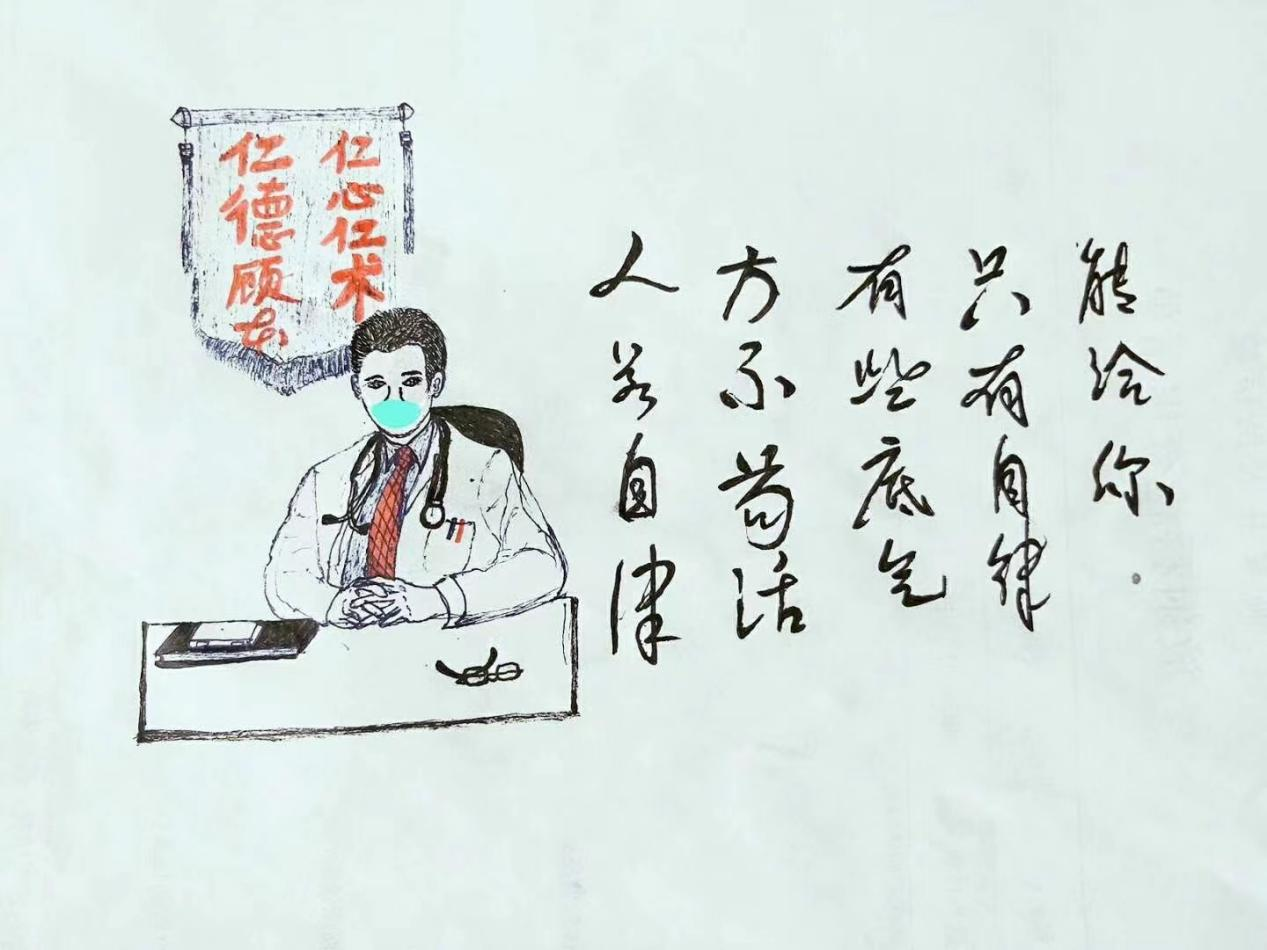 仁心仁术
仁德顾
人若自律
方不苟活
有些底气
只有自律
能给你